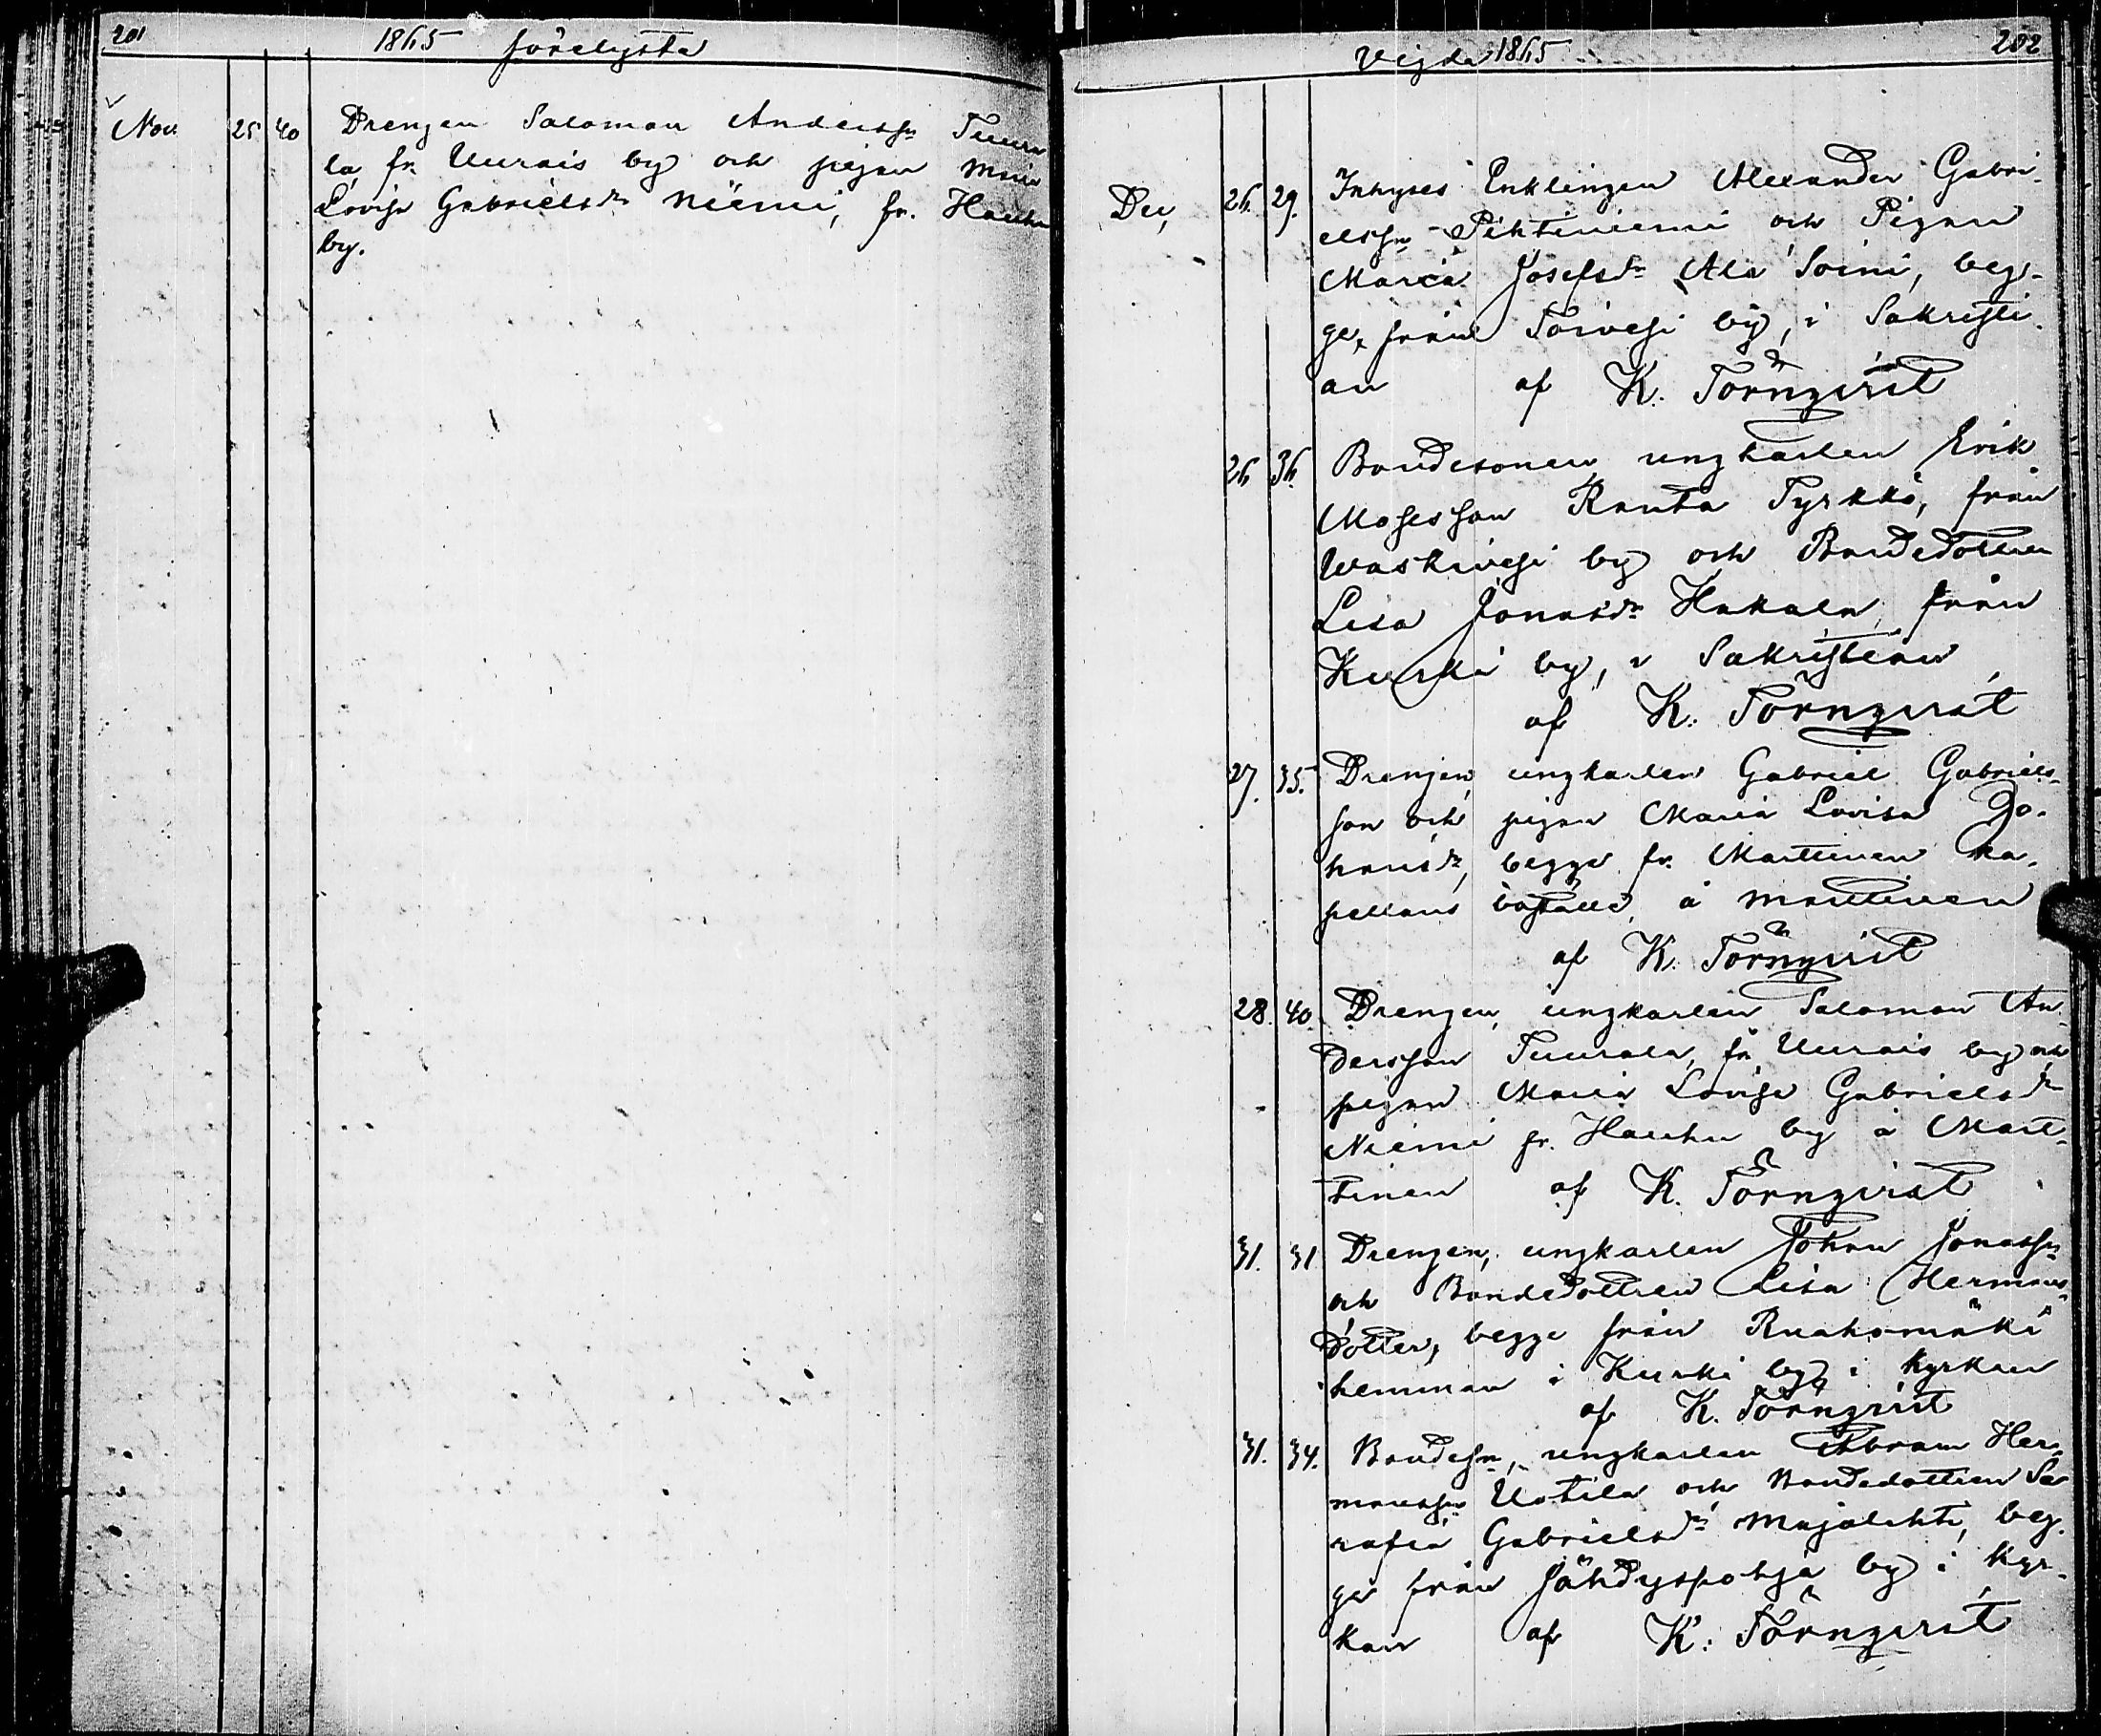 201
1865 förelysta
Nov. 25 40 Drengen Salomon Anderss:n Tuura
la, fr. Uurais by och pigan Maria
Lovisa Gabrielsd:r Niemi, fr. Hauhu
by.
Vigda 1865
202
Dec, 26. 29. Inhyses Enklingen Alexander Gabri-
elss:n Pihtiniemi och Pigan
Maria Josefsd:r Ala Soini, beg-
ge från Toivesi by, i Sakristi-
an af K. Törnqvist
26 36. Bondesonen ungkarlen Erik
Mosesson Ranta Tyrkkö, från
Waskivesi by och Bondedottren
Lisa Jonasd:r Hakala, från
Kurki by, i Sakristian
af K. Törnqvist
27. 35. Drengen, ungkarlen Gabriel Gabriels-
son och pigan Maria Lovisa Jo-
hansd:r, begge fr. Marttinen ka-
pellans boställe, å Marttinen
af K. Törnqvist
28. 40. Drengen, ungkarlen Salomon An-
dersson Tuurala, fr. Uurais by och
pigan Maria Lovisa Gabrielsd:r
Niemi fr. Hauhu by å Mart-
tinen af K. Törnqvist
31. 31 Drengen, ungkarlen Johan Jonass:n
och Bondedottren Lisa Hermans-
dotter, begge från Ruahomäki
hemman i Kurki by, i Kyrkan
af K. Törnqvist
31. 34. Bondes:n, ungkarlen Abram Her-
manss:n Uotila och Bondedottren Se
rafia Gabrielsd:r Majalahti, beg-
ge från Jähdyspohja by i Kyr-
kan af K. Törnqvist